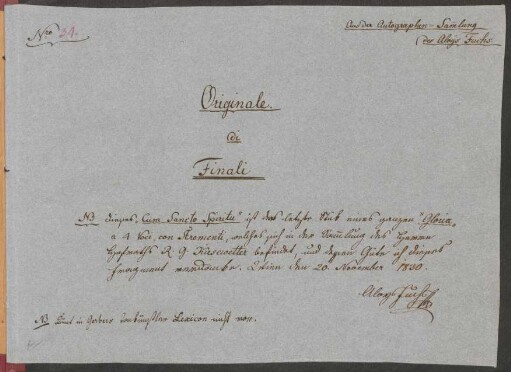 Nro 21.
Aus der Autographen-Samlung
des Aloys Fuchs.
Originale
di
Finali
NB dieses „Cum Sancto Spiritu" ist das letzte Stük eines ganzen „Gloria„
a 4 Voci, con Stromenti, welches sich in der Samlung des Herrn
Hofraths R. G. Kiesewetter befindet, und dessen Güte ich dieses
Fragment verdanke. Wien den 20. November 1830.
Aloys Fuchs
NB kömt in Gerbers Tonkünstler Lexicon nicht vor.